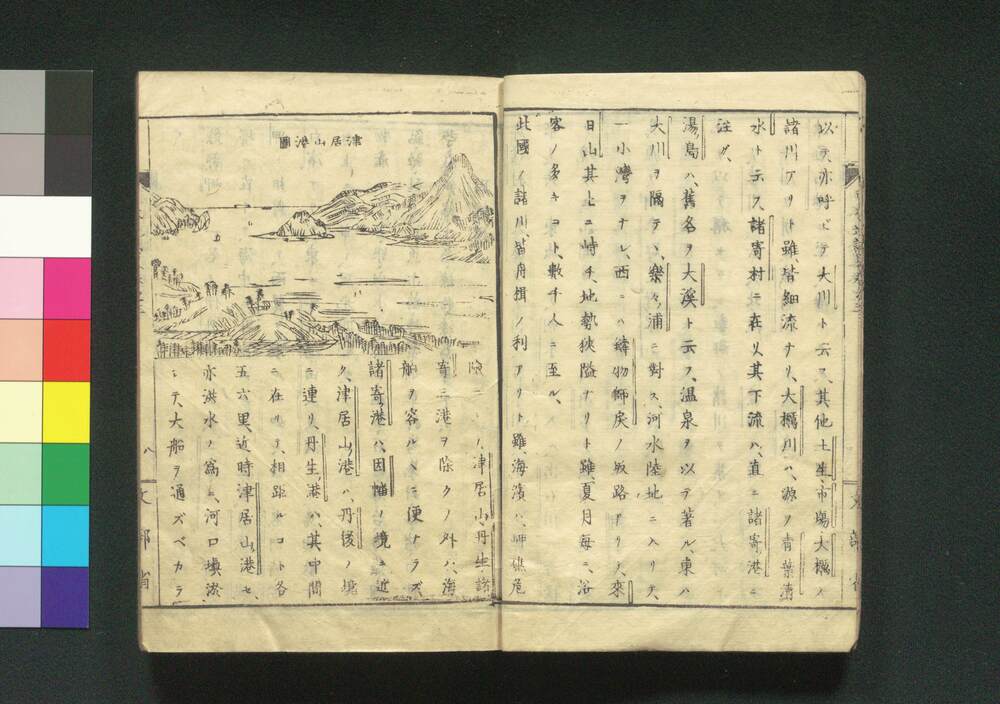 以テ、亦呼ビテ大川ト云フ、其他土生、市場、大橋ノ
諸川アリト雖、皆細流ナリ、大橋川ハ、源ヲ青葉
水ト云フ、諸寄村ニ在リ、其下流ハ、直ニ諸寄港ニ
注グ、
湯島ハ、舊名ヲ大溪ト云フ、温泉ヲ以テ著ル、東ハ
大川ヲ隔テヽ、樂々ノ浦ニ對ス、河水陸地ニ入リテ、
一小灣ヲナシ、西ニハ鑄物師戻ノ坂路アリ、來
日山其上ニ峙チ、地勢狹隘ナリト雖、夏月毎ニ、浴
客ノ多キコト、數千人ニ至ル、
此國ノ諸川、皆舟楫ノ利アリト雖、海濱ハ、岬礁危
津居山港圖
險ニ ノ、津居山、丹生、諸
寄三港ヲ除クノ外ハ、海
舶ヲ容ルヽニ便ナラズ、
諸寄港ハ、因幡ノ境ニ近
ク、津居山港ハ、丹後ノ境
ニ連リ、丹生港ハ、其中間
ニ在リテ、相距ルコト各
五六里、近時津居山港モ、
亦洪水ノ爲ニ、河口墺淤
シテ、大船ヲ通ズベカラ
八
文部省